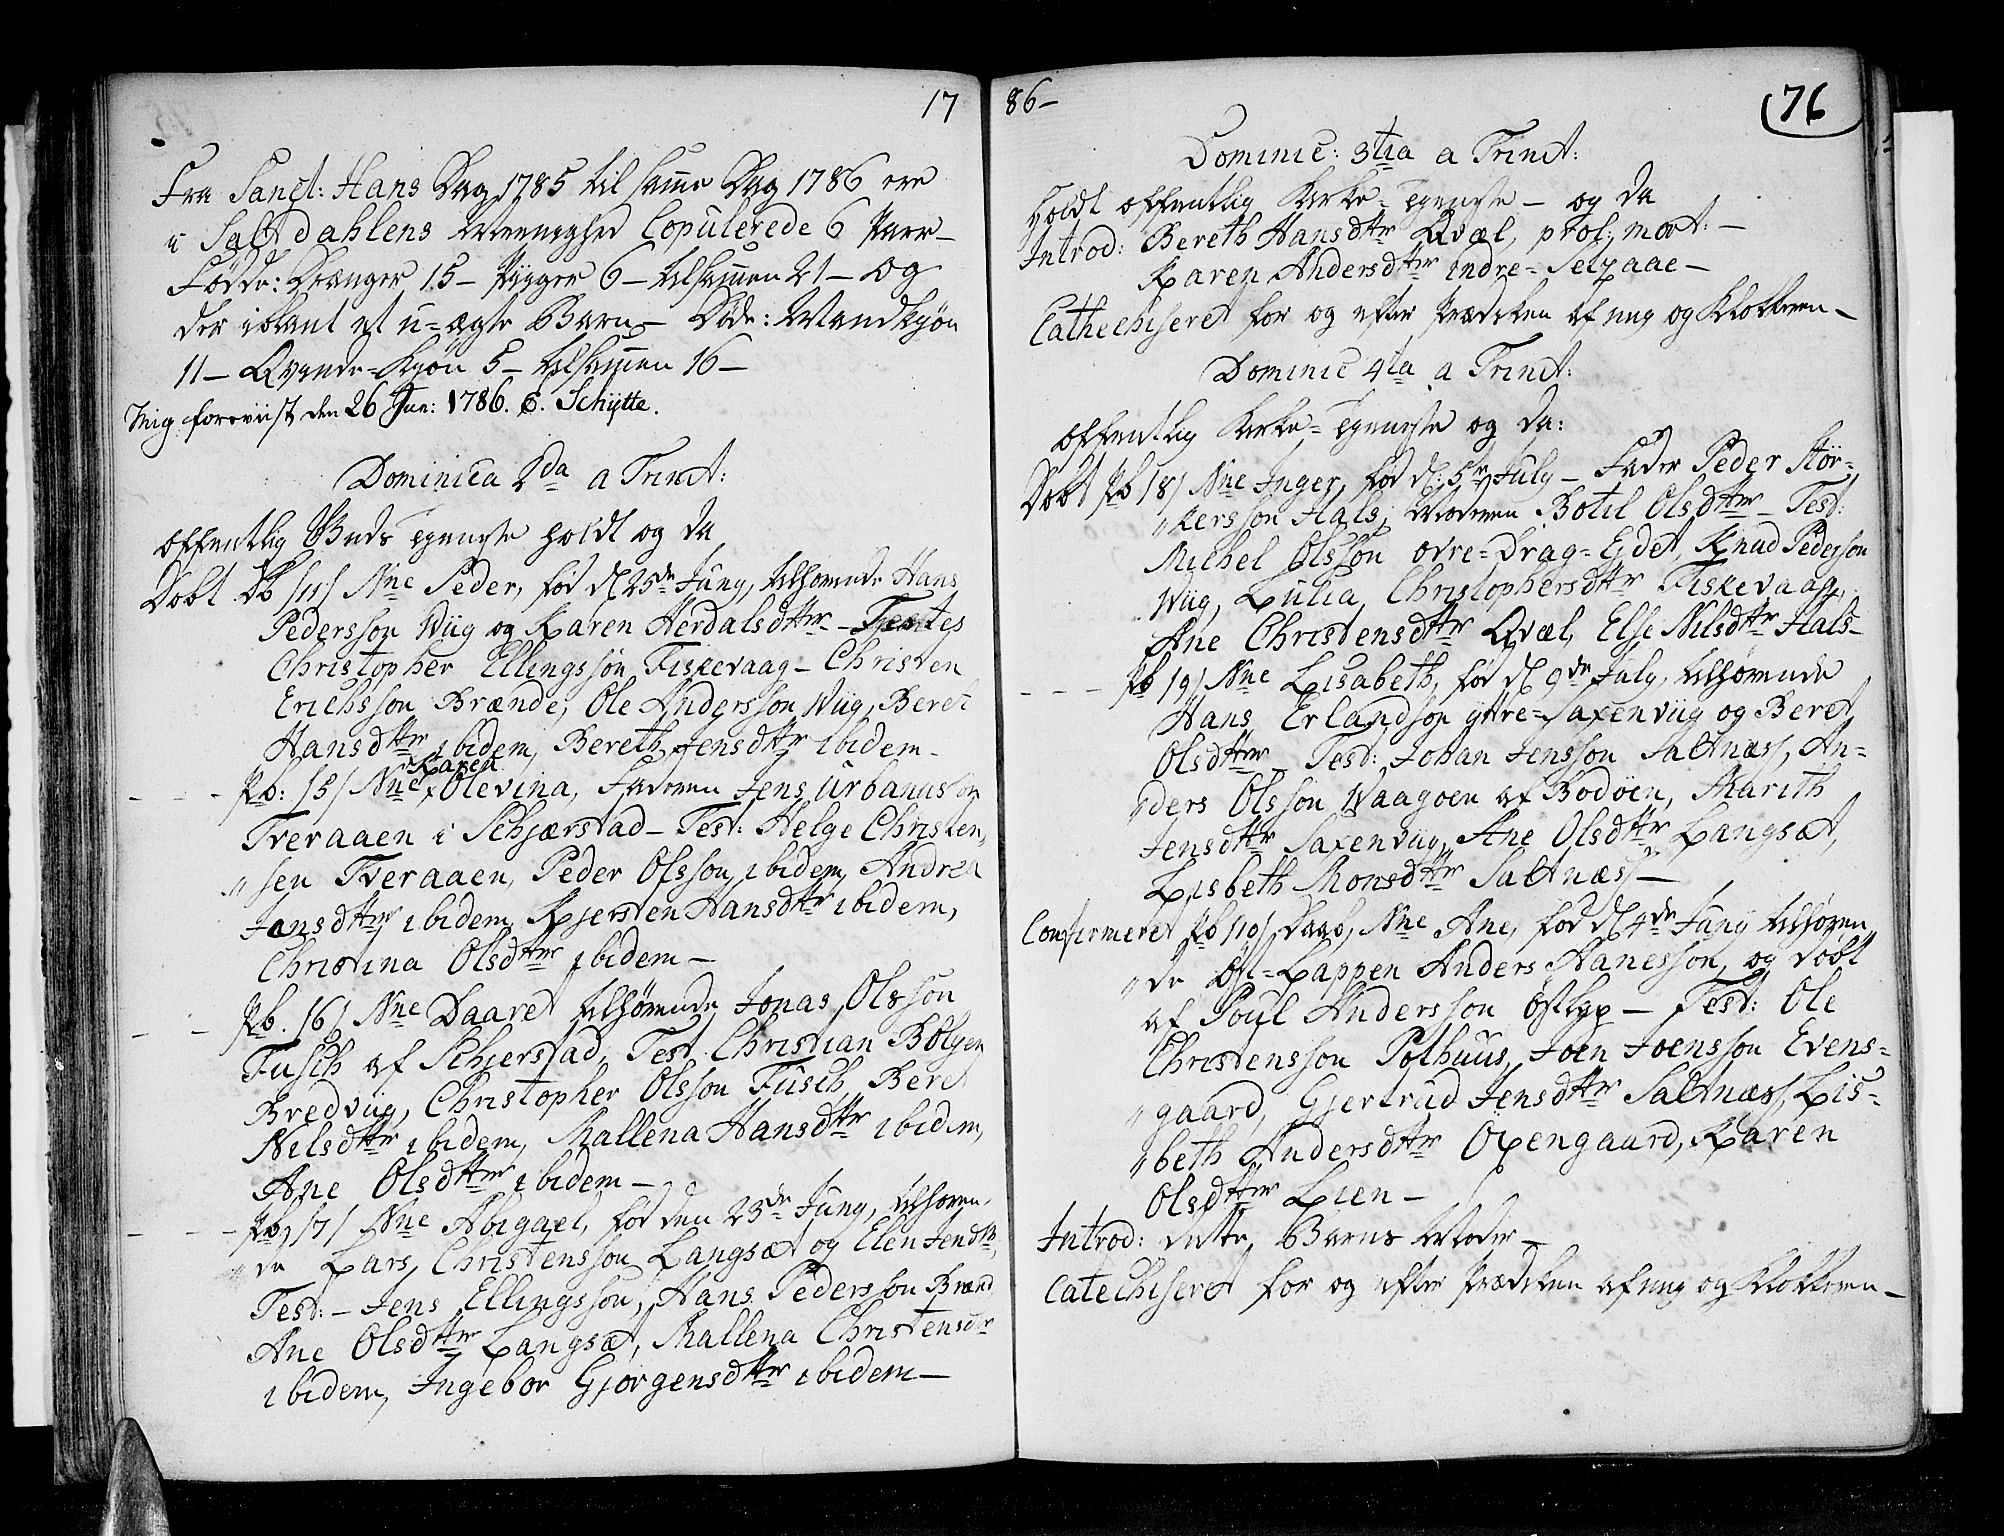 17
Fra Sanct: Hans Dag 1785 til samme Dag 1786 ere
i Saltdahlens Meenighed Copulerede 6 Parr _
Fødde: Drenger 15 _ Piiger 6 _ tilsammen 21 _ og
der iblant et u=ægte Barn _ Døde: Mandkjøn
11 _ Qvinde=Kjøn 5 _ tilsammen 16 _
Mig foreviist den 26 Jun: 1786. E. Schÿtte.
Dominica 2da a Trinit:
offentlig Guds Tjeneste holdt og da
Døbt Db /11/ Nne Peder, fød d 25de Juny, tilhørende Hans
Pedersson Wiig og Karen Herdalsdttr _ Testes
Christopher Ellingssøn Fiskevaag _ Christen
Erichsson Brænde, Ole Andersson Wiig, Beret
Hansdttr ibidem, Bereth Jensdttr ibidem _
Karen
_ _ _ Pb: 15/ Nne Olevina, Faderen Jens Urbanusson
Tveraaen i Schjærstad _ Test: Helge Christen,,
,, sen Tveraaen, Peder Olsson ibidem, Andrea
Jonsdttr ibidem, Kjersten Hansdttr ibidem,
Christina Olsdttr ibidem _
_ _ Pb. 16/ Nne Daaret tilhørende Jonas Olsson
Fusch af Schjerstad, Test Christian Bolgen
Bredviig, Christopher Olsson Fusch, Beret
Nilsdttr ibidem, Mallena Hansdttr ibidem,
Ane Olsdttr ibidem _
_ _ _ Pb, 17/ Nne Abigael, fød den 23de Juny, tilhøren,
,, de Lars Christensson Langsæt og Elen Jensdtr,
Test: _ Jens Ellingsson, Hans Pedersson Brænd
Ane Olsdttr Langsæt, Mallena Christensdtr
ibidem, Ingebor Gjorgensdttr ibidem _
86 _
76
Dominic: 3tia a Trinit:
Holdt offentlig Kirke=Tjeneste _ og da
Introd: Bereth Hansdttr Qvæl, prol: mort: _
Karen Andersdttr indre=Setzaae _
Cathechiseret før og efter Prædiken af mig og Klokkeren _
Dominic 4ta a Trinit:
offentlig Kirke=Tjeneste og da:
Døbt Pb 18/ Nne Inger, fød d: 5te July _ Fader Peder Stør=
,, kersson Hals, Moderen Botil Olsdttr _ Test:
Michel Olsson øvre=Drag=Ejdet, Knud Pedersson
Wiig, Lulia Christophersdttr Fiskevaag,
Ane Christensdttr Qvæl, Else Nilsdttr Hals _
_ _ _ Pb 19/ Nne Lisabeth, fød d 9de July, tilhørende
Hans Erlandson yttre=Saxenviig og Beret
Olsdttr _ Test: Johan Jensson Saltnæss, An=
,, ders Olsson Waagøen af Bodøen, Marith
Jensdttr Saxenviig, Ane Olsdttr Langsæt,
Lisbeth Monsdttr Saltnæss _
Confirmeret Pb /10/ Daab, Nne Ane, fød d 4de Juny tilhøren,
,, de Øst=Lappen Anders Hanesson, og døbt
af Poul Andersson Østlap _ Test: Ole
Christensson Pothuus, Joen Joensson Evens=
,, gaard, Gjertrud Jensdttr Saltnæss, Lis=
,, beth Andersdttr Oxengaard, Karen
Olsdttr Lien _
Introd: dette Barns Moder _
Catechiseret før og efter Prædiken af mig og Klokkeren _